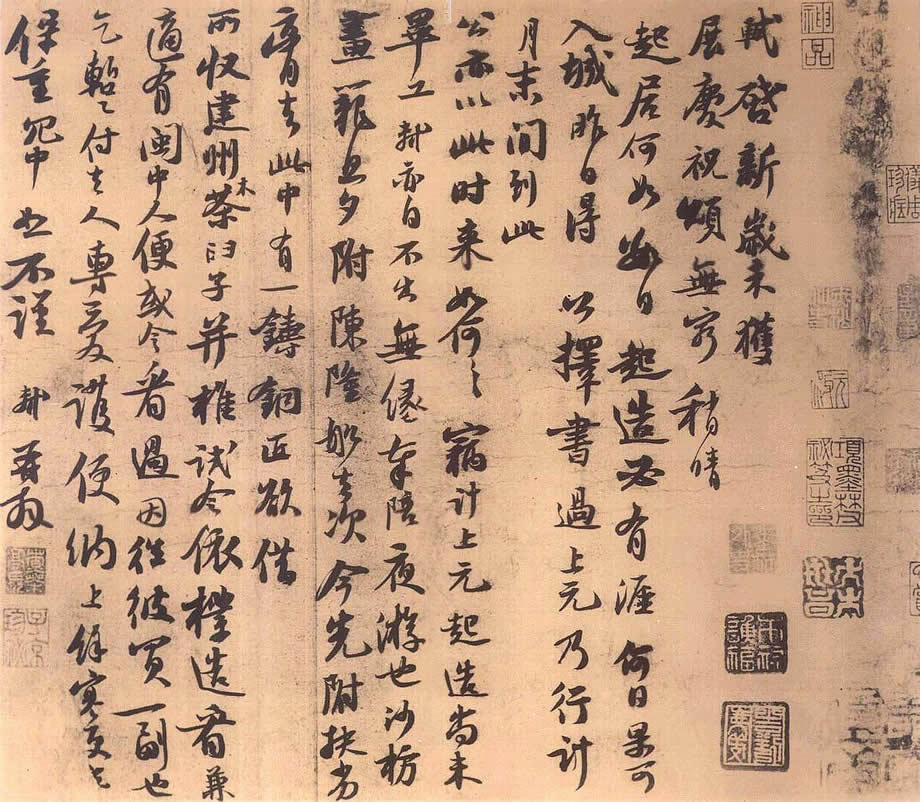 神品
項墨林父祕笈之印
軾啓新歲未獲
展慶祝頌無窮稍晴
起居何如數日起造必有涯何日果可
入城昨日得公擇書過上元乃行計
月末間到此
公亦以此時來如何々竊計上元起造尚未
畢工軾亦自不出無緣奉陪夜游也沙枋
畫籠旦夕附陳隆船去次今先附扶劣
膏去此中有一鑄銅匠欲借
所收建州木茶臼子并椎試令依樣造看兼
適有閩中人便或令看過因往彼買一副也
乞暫付去人專愛護便納上餘寒更乞
保重冗中恕不謹軾再拜